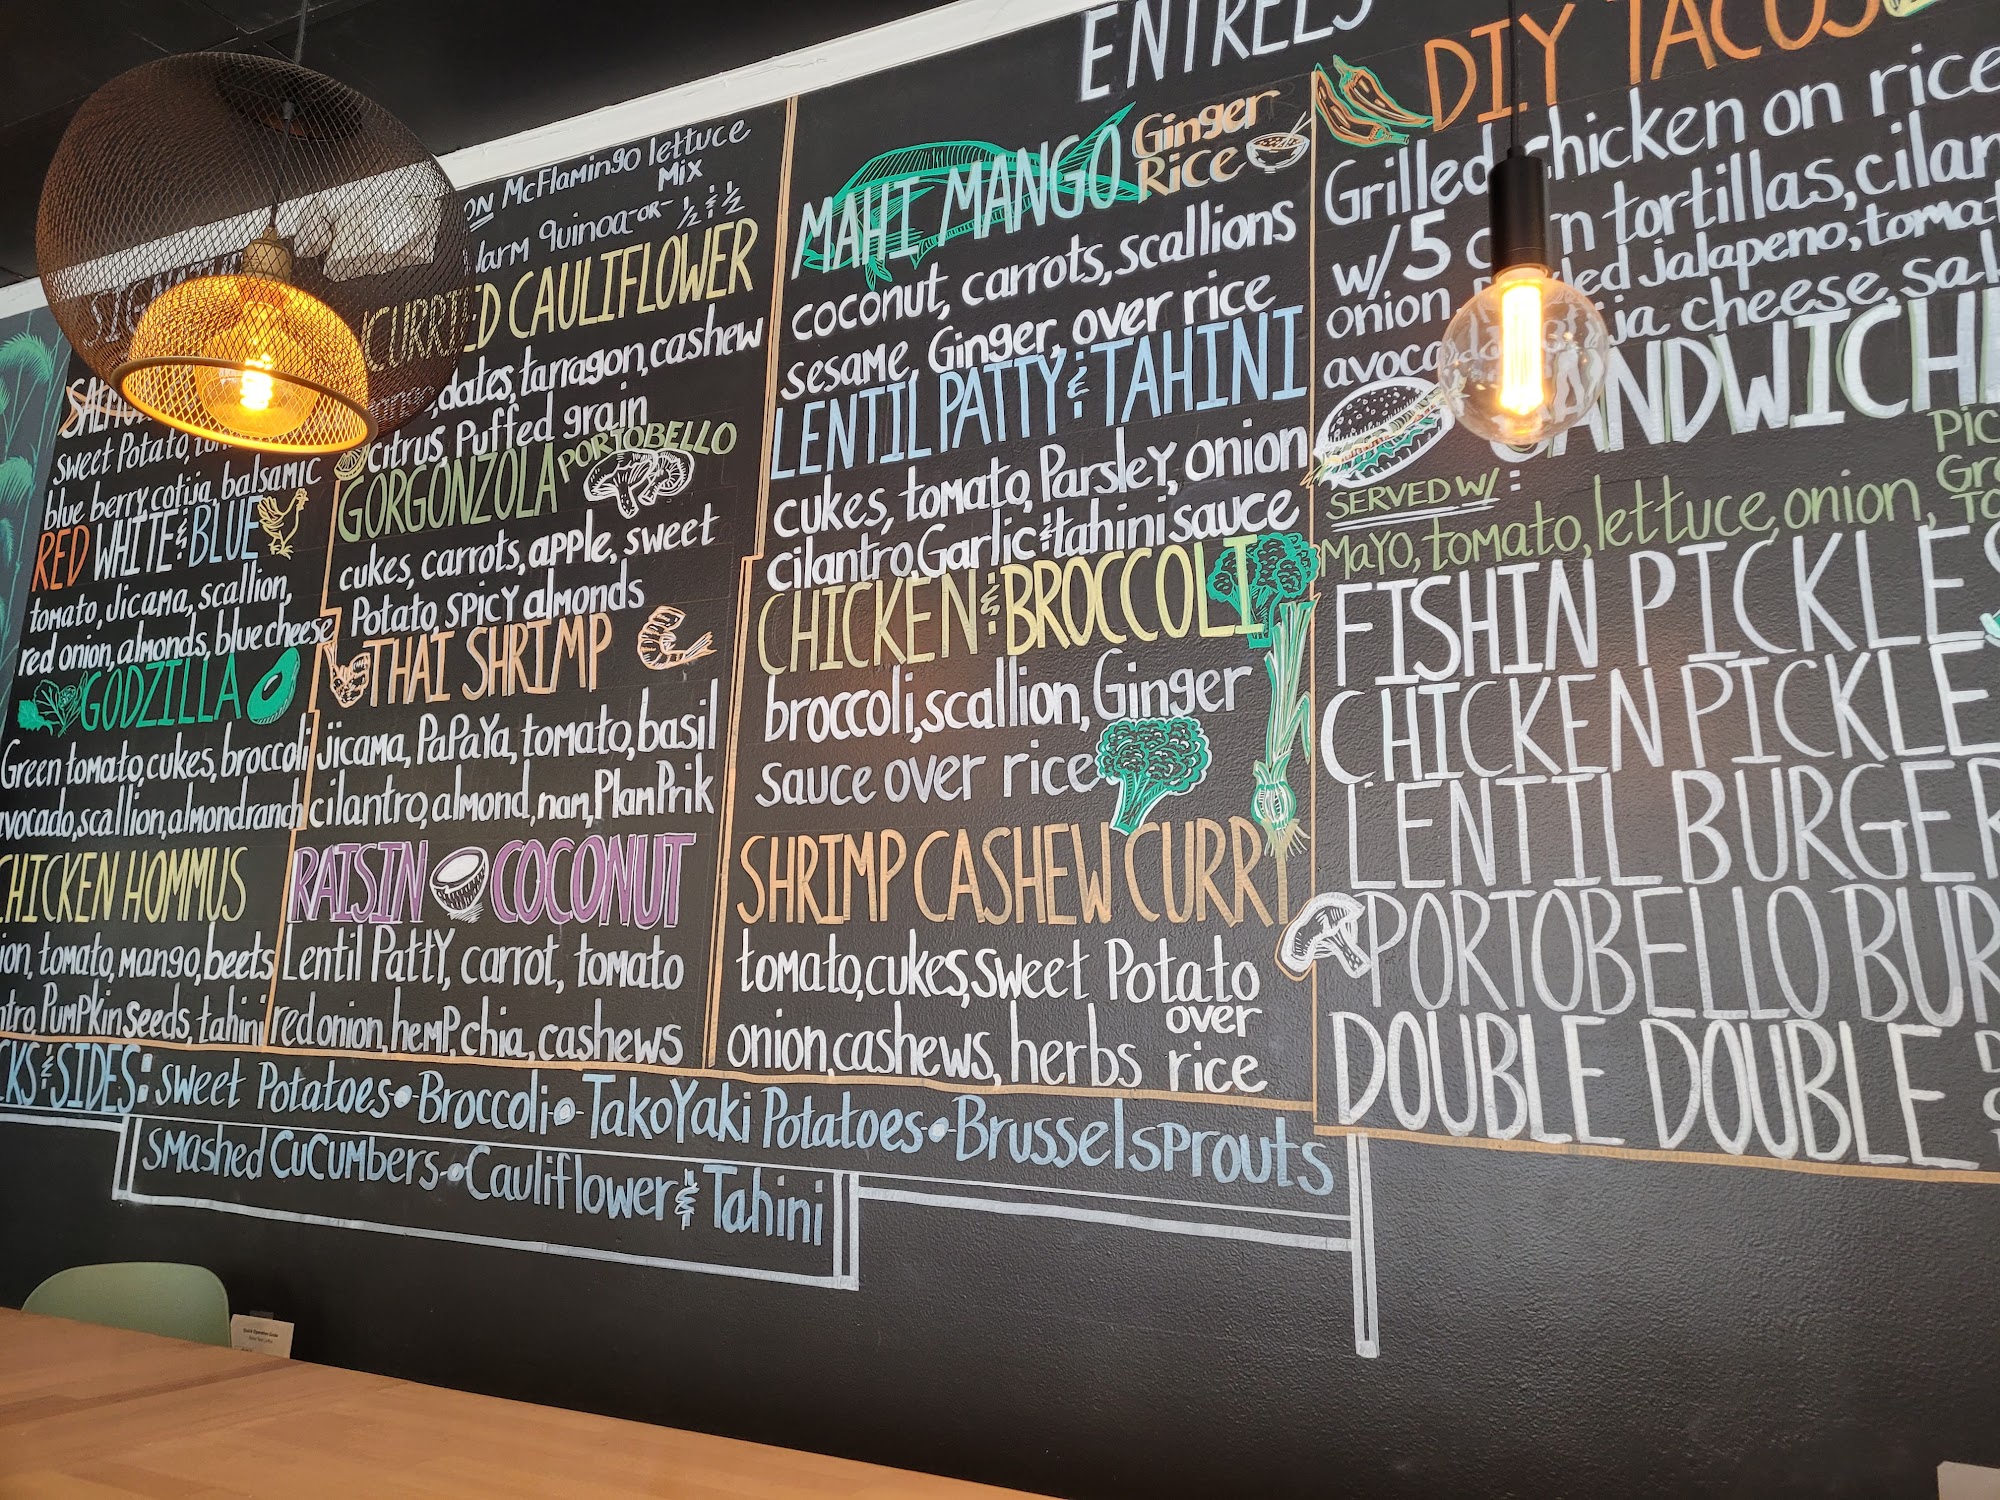 ON McFlamingo lettuce
Mix
Warm quinoa -OR- ½ & ½
SALMON
sweet Potato,
blue berry cotija, balsamic
RED WHITE & BLUE
tomato, Jicama, scallion,
red onion, almonds, blue cheese
GODZILLA
Green tomato, cukes, broccoli
avocado, scallion, almond ranch
CHICKEN HOMMUS
tomato, mango, beets
Pumpkin seeds, tahini
CURRIED CAULIFLOWER
dates, tarragon, cashew
citrus, Puffed grain
GORGONZOLA PORTOBELLO
cukes, carrots, apple, sweet
Potato, SPICY almonds
THAI SHRIMP
jicama, PaPaYa, tomato, basil
cilantro, almond, nam, Plam Prik
RAISIN COCONUT
Lentil Patty, carrot, tomato
red onion, hemp, chia, cashews
ENTREES
MAHI MANGO Ginger
Rice
coconut, carrots, scallions
sesame, Ginger, over rice
LENTIL PATTY & TAHINI
cukes, tomato, Parsley, onion
cilantro, Garlic & tahini sauce
CHICKEN & BROCCOLI
broccoli, scallion, Ginger
sauce over rice
SHRIMP CASHEW CURRY
tomato, cukes, sweet Potato
onion, cashews, herbs over
rice
DIY TACOS
Grilled chicken on rice
w/ 5 corn tortillas,
onion, jalapeno,
avocado, cheese,
SANDWICH
SERVED W/:
Mayo, tomato, lettuce, onion,
FISHIN PICKLES
CHICKEN PICKLE
LENTIL BURGER
PORTOBELLO BUR
DOUBLE DOUBLE
CKS & SIDES: sweet Potatoes • Broccoli • Takoyaki Potatoes • Brussel sprouts
smashed cucumbers • Cauliflower & Tahini